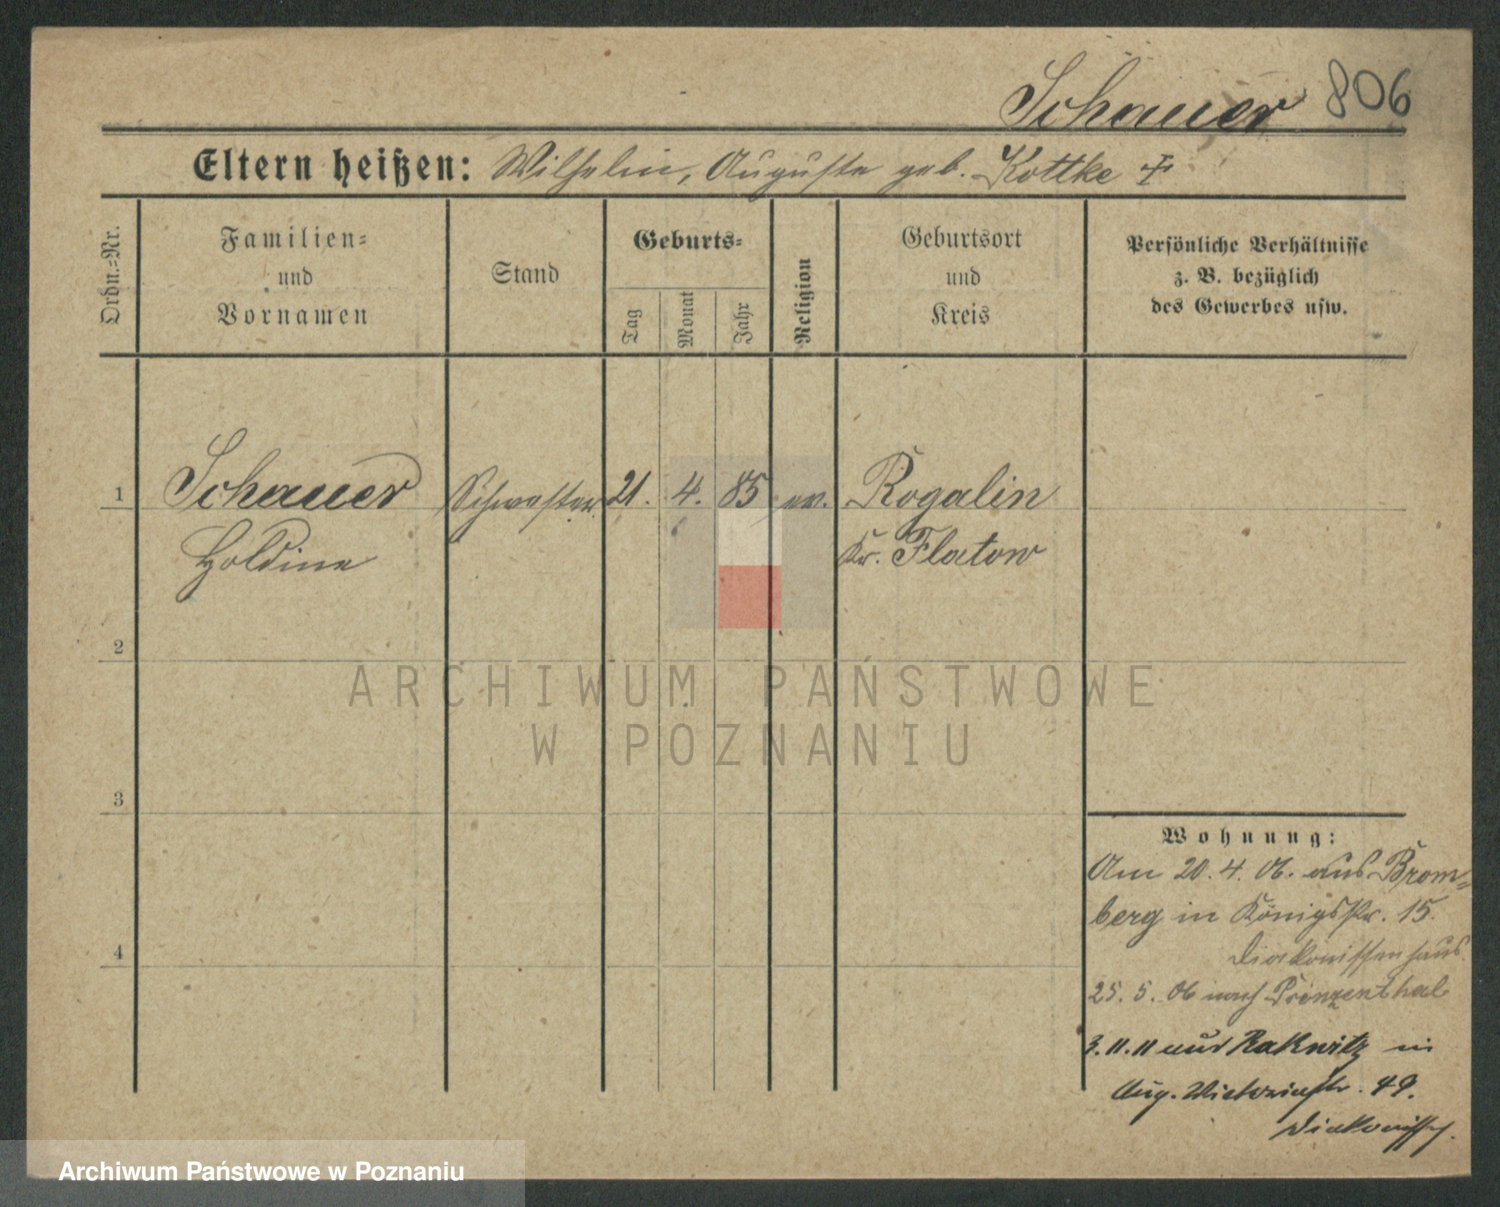 Schauer 806
Eltern heißen: Wilhelm, Auguste geb. Kottke ‡
Ordn.-Nr.
Familien-
und
Vornamen
Stand
Geburts-
Tag
Monat
Jahr
Religion
Geburtsort
und
Kreis
Persönliche Verhältnisse
z. B. bezüglich
des Gewerbes usw.
1 Schauer Schwester 21. 4. 85 ev. Rogalin
Holdine Kr. Flatow
2
ARCHIWUM PAŃSTWOWE
W POZNANIU
3
Wohnung:
Am 20. 4. 06. aus Brom-
berg in Königstr. 15.
Diakonissenhaus
4
25. 5. 06 nach Prinzenthal
3. 11. 11 aus Rakwitz in
Aug. Victoriastr. 49.
Diakoniss.
Archiwum Państwowe w Poznaniu